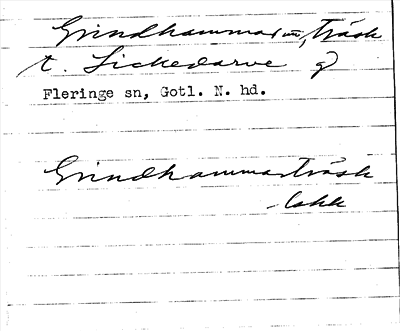 Grindhammars, träsk
t. Lickedarve
Fleringe sn, Gotl. N. hd.
Grindhammarträsk